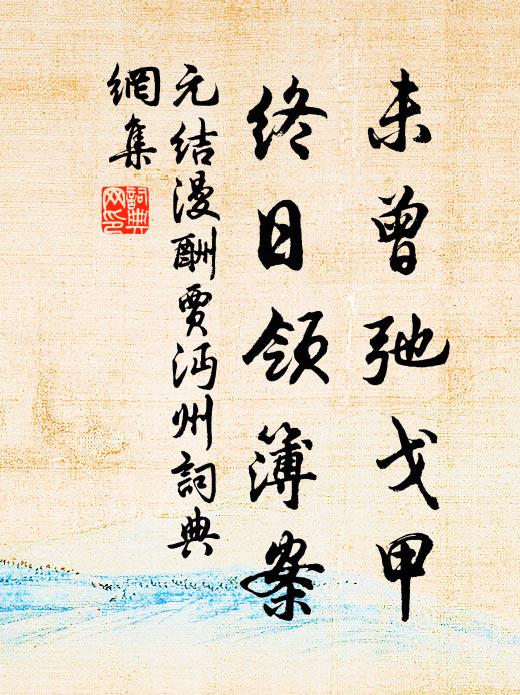 未曾弛戈甲
終日領簿案
元结漫酬贾沔州詞典
網集
詞典網印